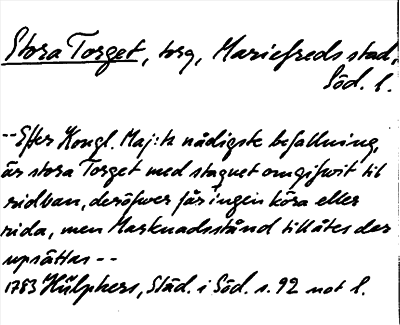 Stora Torget, torg, Mariefreds stad,
Söd. l.
--Efter Kongl. Maj:ts nådigste befallning,
är stora Torget med staquet omgifwit til
ridban, deröfwer får ingen köra eller
rida, men Marknadsstånd tillåtes der
upsättas--
1783 Hülphers, Städ. i Söd. s. 92 not l.